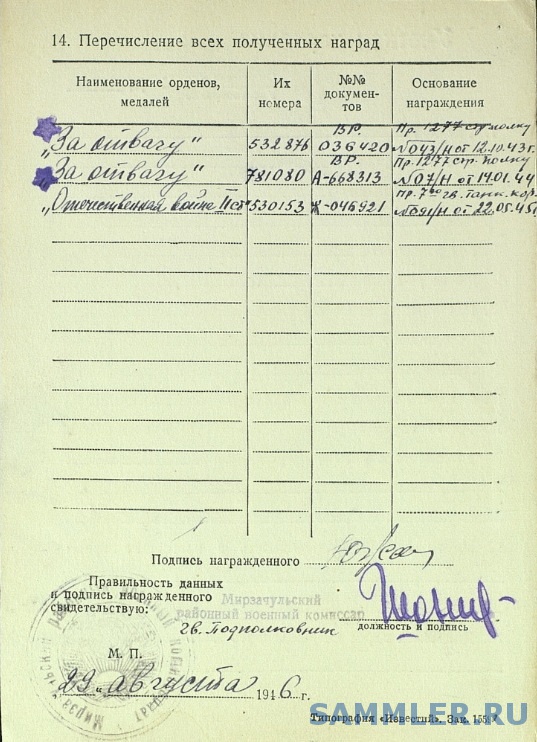 14. Перечисление всех полученных наград
Наименование орденов, медалей
Их номера
№№ документов
Основание награждения
„За отвагу“ 532876 ВР. 036420 Пр. 1277 стр. полку №043/Н от 12.10.43 г.
„За отвагу“ 781080 ВР. А-668313 Пр. 1277 стр. полку №07/Н от 14.01.44
„Отечественная война II ст“ 530153 Ж-046921 Пр. 7го гв. танк. кор. от 22.05.45
Подпись награжденного
Правильность данных
и подпись награжденного
свидетельствую:
Мирзачульский
районный военный комиссар
гв. подполковник
должность и подпись
М. П.
„29„ августа 1946 г.
Типография «Известий». Зак.
SAMMLER.RU